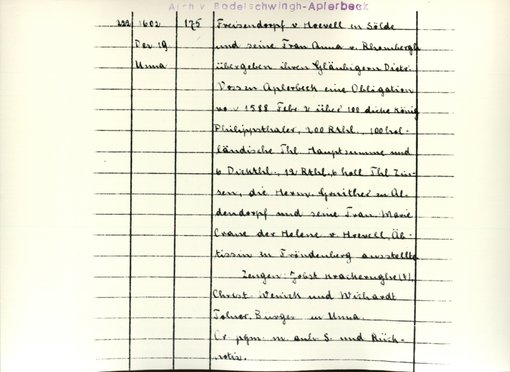 Arch v. Bodelschwingh-Apferbeck
222 1602 175 Freisendorpf v Hoevell in Sölde
Dez 19 und seine Frau Anna v. Rhembergh
Unna übergeben ihren Gläubigern Dietr.
Vossen Aplerbeck eine Obligation
vo. v 1588 Febr 2 über 100 dicke König
Philippsthaler, 200 Rthl., 100 hol-
ländische Thl. Hauptsumme und
6 Dickthl., 12 Rthl, 6 holl Thl Zin-
sen, die Herm. in Al-
dendorpf und seine Frau Marie
Crane der Helene v. Hoevell, Äb-
tissin in Fröndenberg ausstellte
Zeugen: Jobst
Christ. und Wichardt
Bürger in Unna.
Or pgm. m. anh. S. und Rück-
notiz.